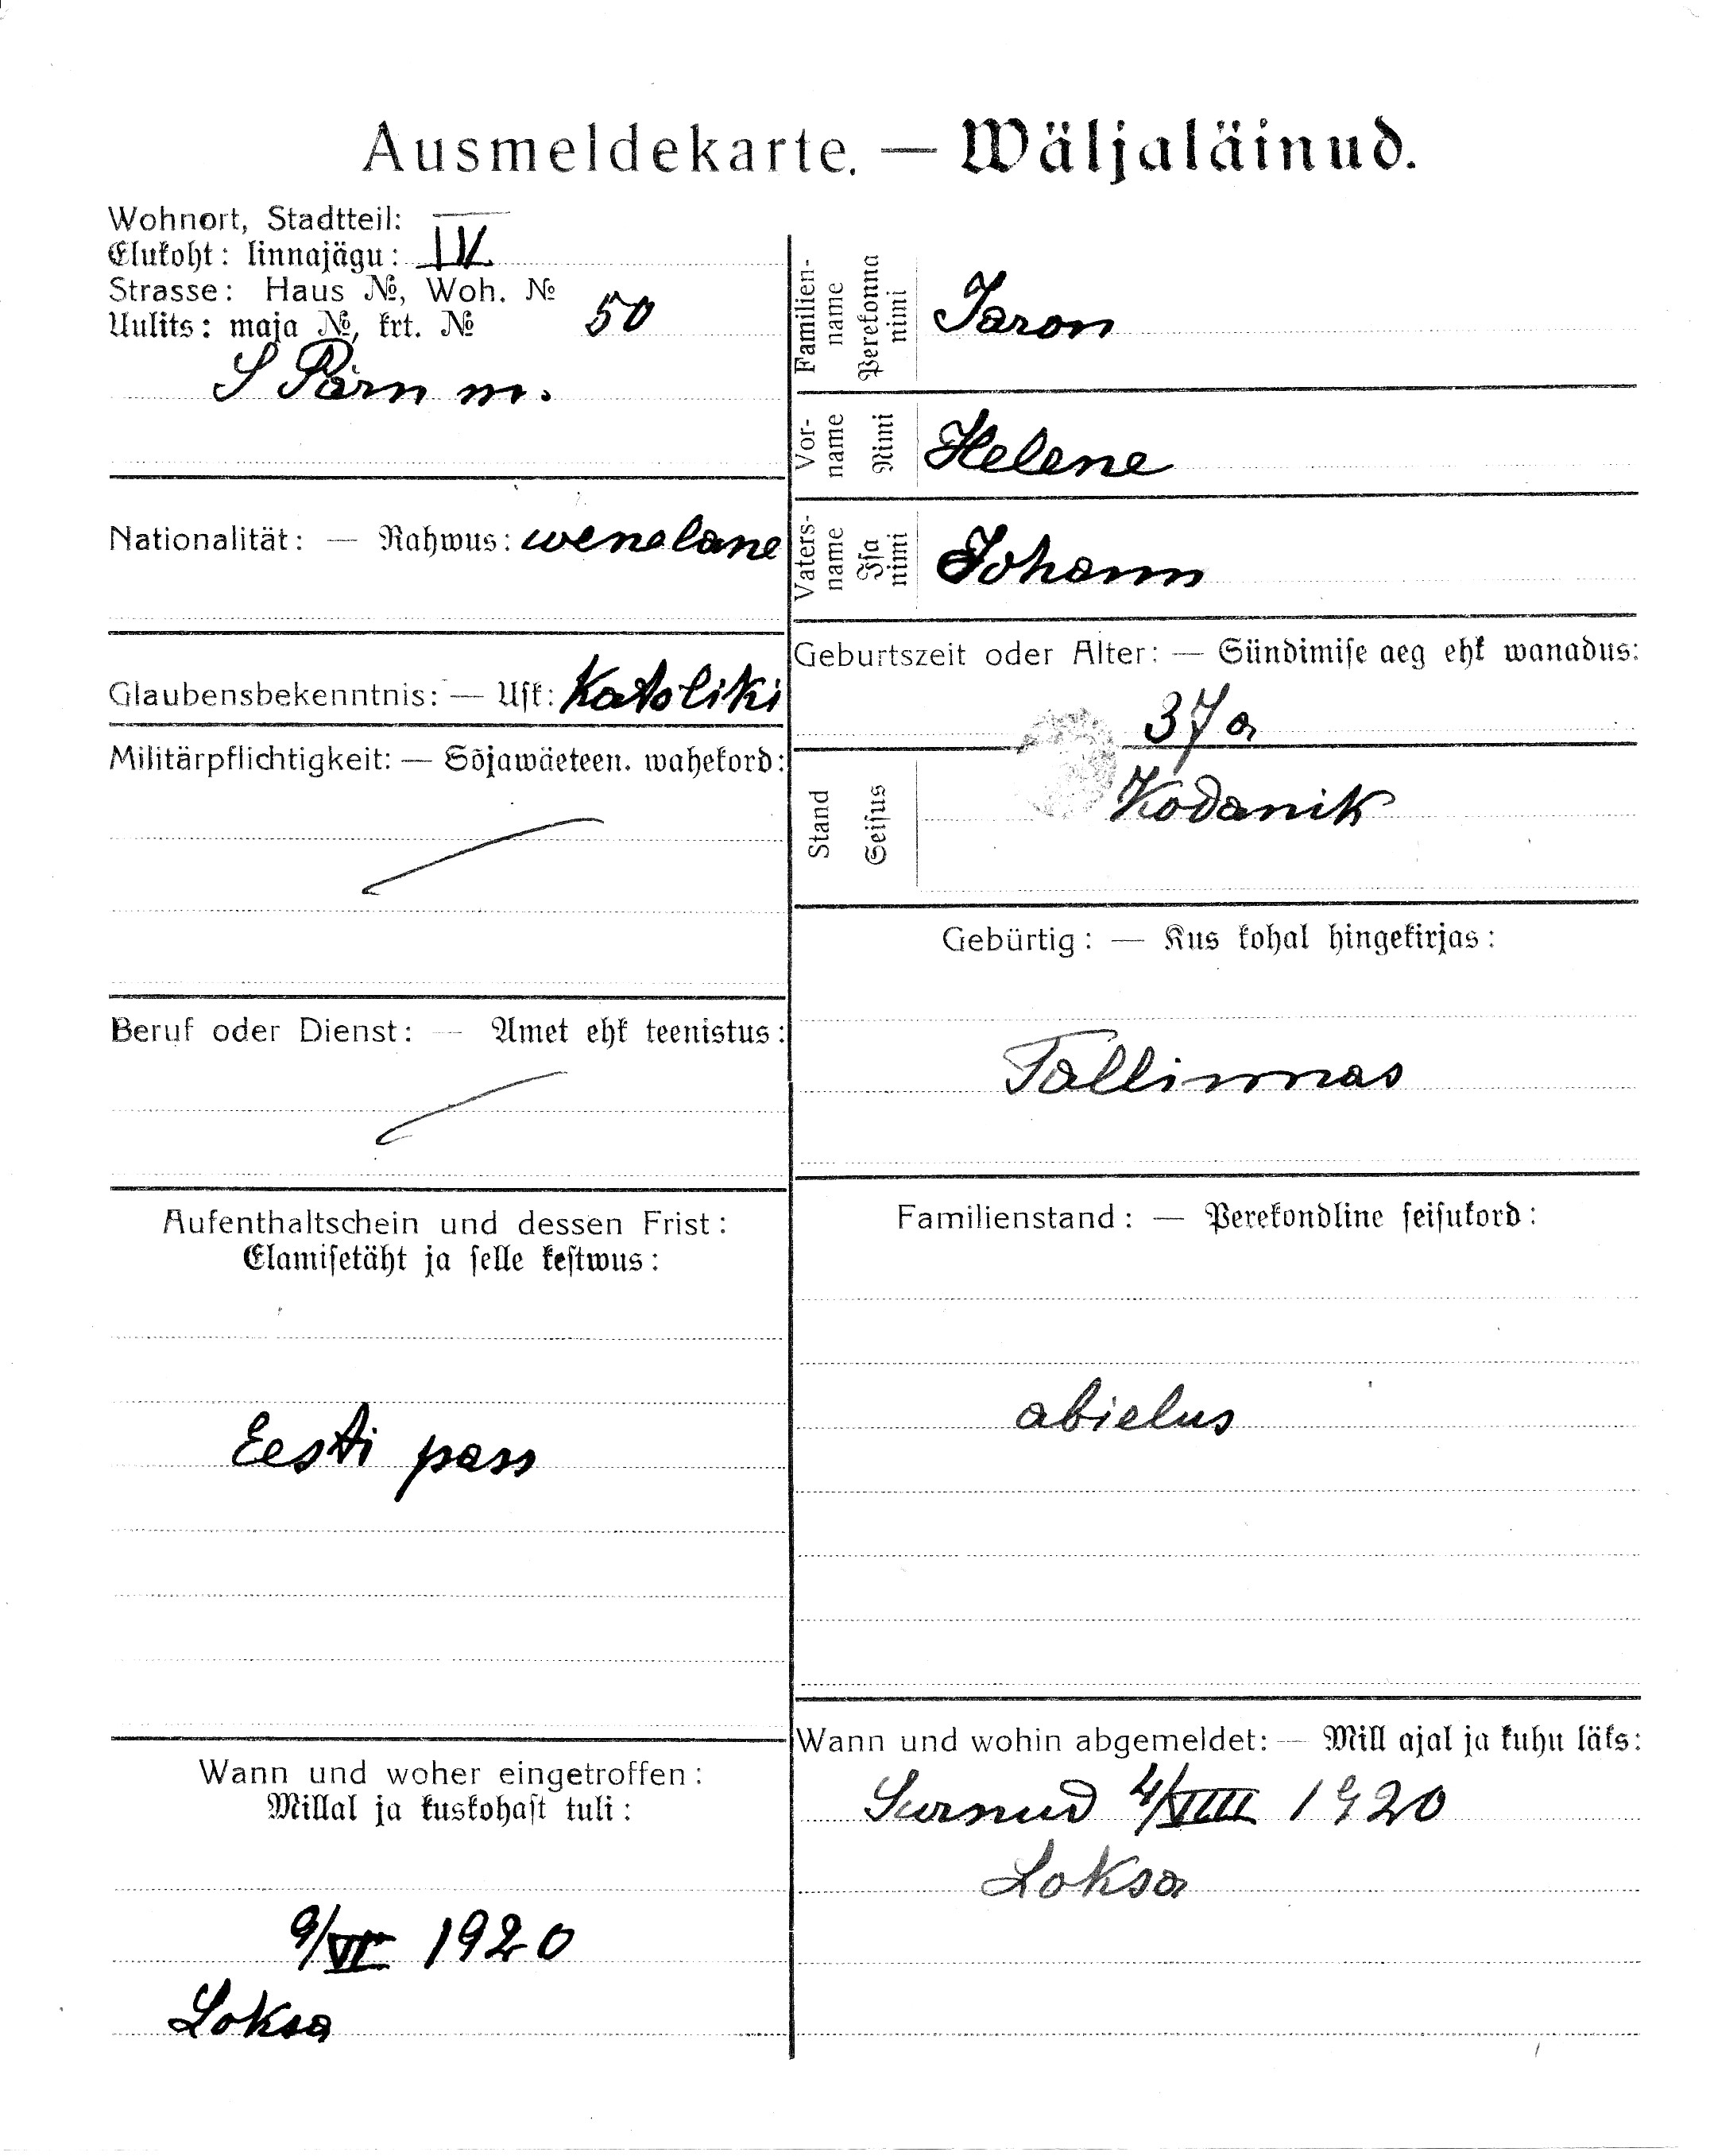 Ausmeldekarte. — Wäljaläinud.
Wohnort, Stadtteil:
Elukoht: linnajägu: IV
Strasse: Haus №, Woh. №
Uulits: maja №, krt. № 50
S Pärn m.
Nationalität: — Rahwus: wenelane
Glaubensbekenntnis: — Usk: Katoliki
Militärpflichtigkeit: — Sõjawäeteen. wahekord:
Beruf oder Dienst: — Amet ehk teenistus:
Aufenthaltschein und dessen Frist:
Elamisetäht ja selle kestwus:
Eesti pass
Wann und woher eingetroffen:
Millal ja kuskohast tuli:
9/VI 1920
Loksa
Familien-
name
Perekonna
nimi
Jaron
Vor-
name
Nimi
Helene
Vaters-
name
Isa
nimi
Johann
Geburtszeit oder Alter: — Sündimise aeg ehk wanadus:
37 a
Stand
Seisus
Kodanik
Gebürtig: — Kus kohal hingekirjas:
Tallinnas
Familienstand: — Perekondline seisukord:
abielus
Wann und wohin abgemeldet: — Mill ajal ja kuhu läks:
Surnud 4/VIII 1920
Loksa